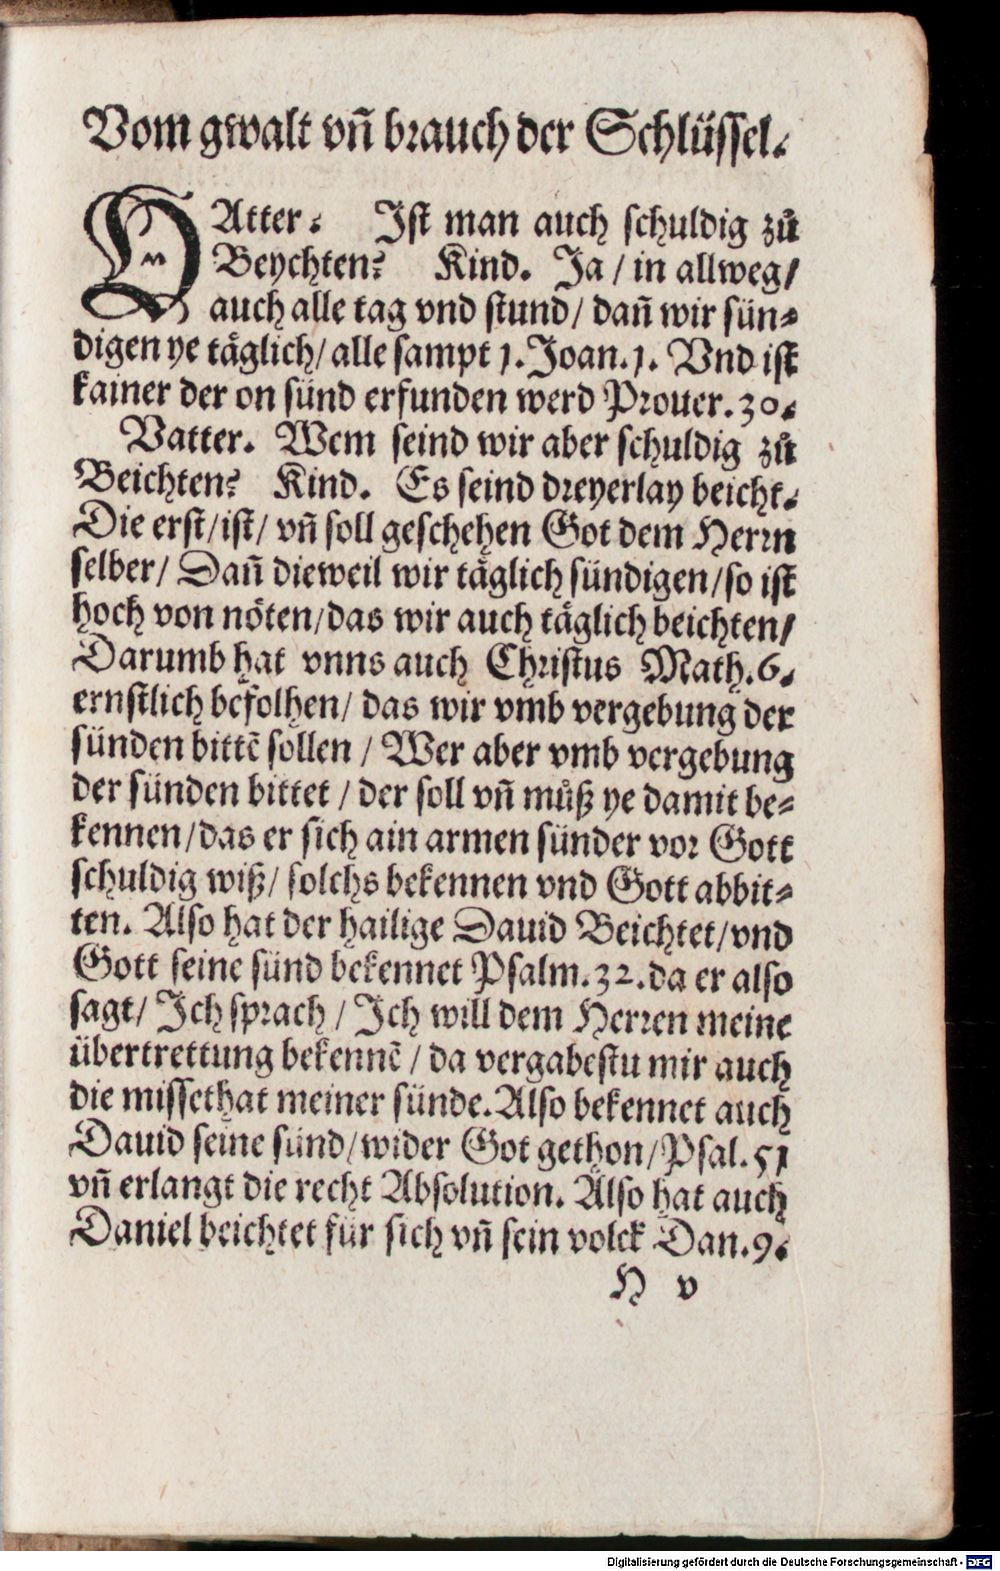 Vom gwalt vñ brauch der Schlüssel.
VAtter. Ist man auch schuldig zů
Beychten? Kind. Ja / in allweg /
auch alle tag vnd stund / dañ wir sün⸗
digen ye täglich / alle sampt 1. Joan. 1. Vnd ist
kainer der on sünd erfunden werd Prouer. 30.
Vatter. Wem seind wir aber schuldig zů
Beichten? Kind. Es seind dreyerlay beicht.
Die erst / ist / vñ soll geschehen Got dem Herrn
selber / Dañ dieweil wir täglich sündigen / so ist
hoch von nöten / das wir auch täglich beichten /
Darumb hat vnns auch Christus Math. 6.
ernstlich befolhen / das wir vmb vergebung der
sünden bittē sollen / Wer aber vmb vergebung
der sünden bittet / der soll vñ můß ye damit be⸗
kennen / das er sich ain armen sünder vor Gott
schuldig wiß / solchs bekennen vnd Gott abbit⸗
ten. Also hat der hailige Dauid Beichtet / vnd
Gott seine sünd bekennet Psalm. 32. da er also
sagt / Ich sprach / Ich will dem Herren meine
übertrettung bekennē / da vergabestu mir auch
die missethat meiner sünde. Also bekennet auch
Dauid seine sünd / wider Got gethon / Psal. 51
vñ erlangt die recht Absolution. Also hat auch
Daniel beichtet für sich vñ sein volck Dan. 9.
H v
Digitalisierung gefördert durch die Deutsche Forschungsgemeinschaft - DFG